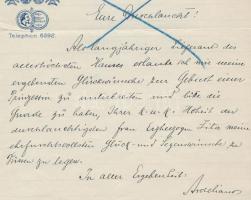 Telephon 6892.
Eure Durchlaucht!
Als langjähriger Lieferant des
allerhöchsten Hauses erlaube ich mir meine
ergebensten Glückwünsche zur Geburt einer
Prinzessin zu unterbreiten und bitte die
Gnade zu haben, Ihrer k. u. k. Hoheit der
durchlauchtigsten Frau Erzherzogin Zita meine
ehrfurchtsvollsten Glück- und Segenwünsche zu
Füssen zu legen.
In aller Ergebenheit: